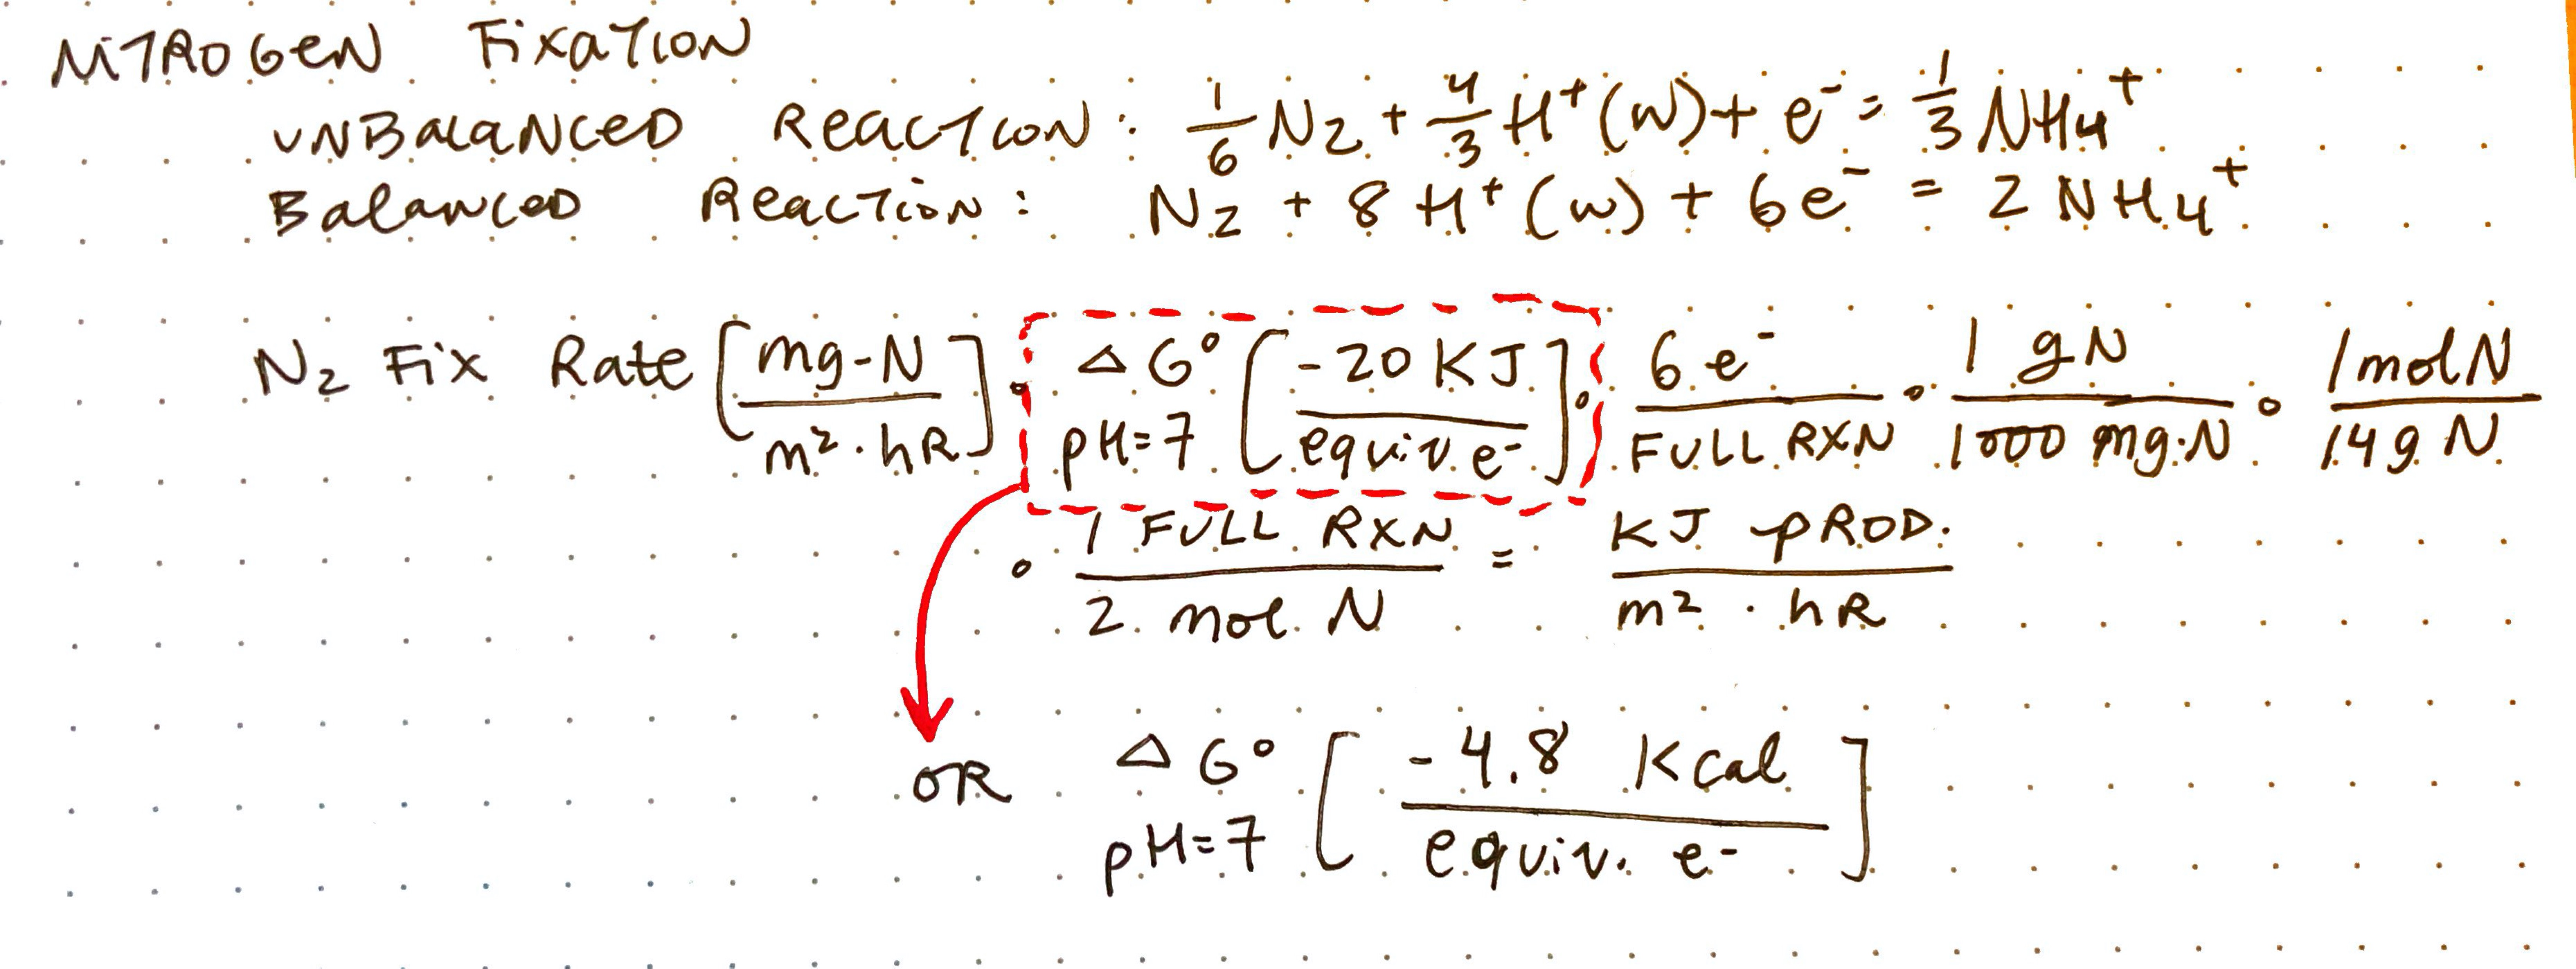 NiTROGeN FixaTION
UNBalaNCeD ReacTION: 1/6 N₂ + 4/3 H⁺(W) + e⁻ = 1/3 NH₄⁺
BalanceD ReacTioN: N₂ + 8 H⁺(w) + 6e⁻ = 2 NH₄⁺
N₂ Fix Rate [mg-N / m²·hR] · ΔG° pH=7 [-20 KJ / equiv. e⁻] · 6 e⁻ / FULL RXN · 1 gN / 1000 mg·N · 1 mol N / 14 g N
· 1 FULL RXN / 2 mol N = KJ pROD. / m² · hR
OR ΔG° pH=7 [-4.8 Kcal / equiv. e-]